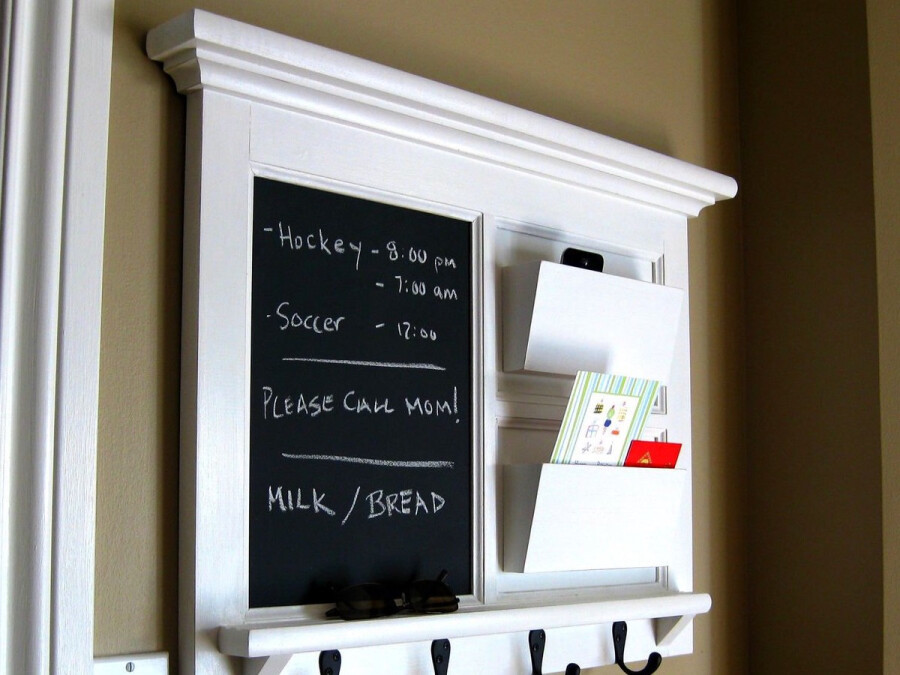 - Hockey - 8:00 pm
- 7:00 am
- Soccer - 12:00
PLEASE CALL MOM!
MILK / BREAD